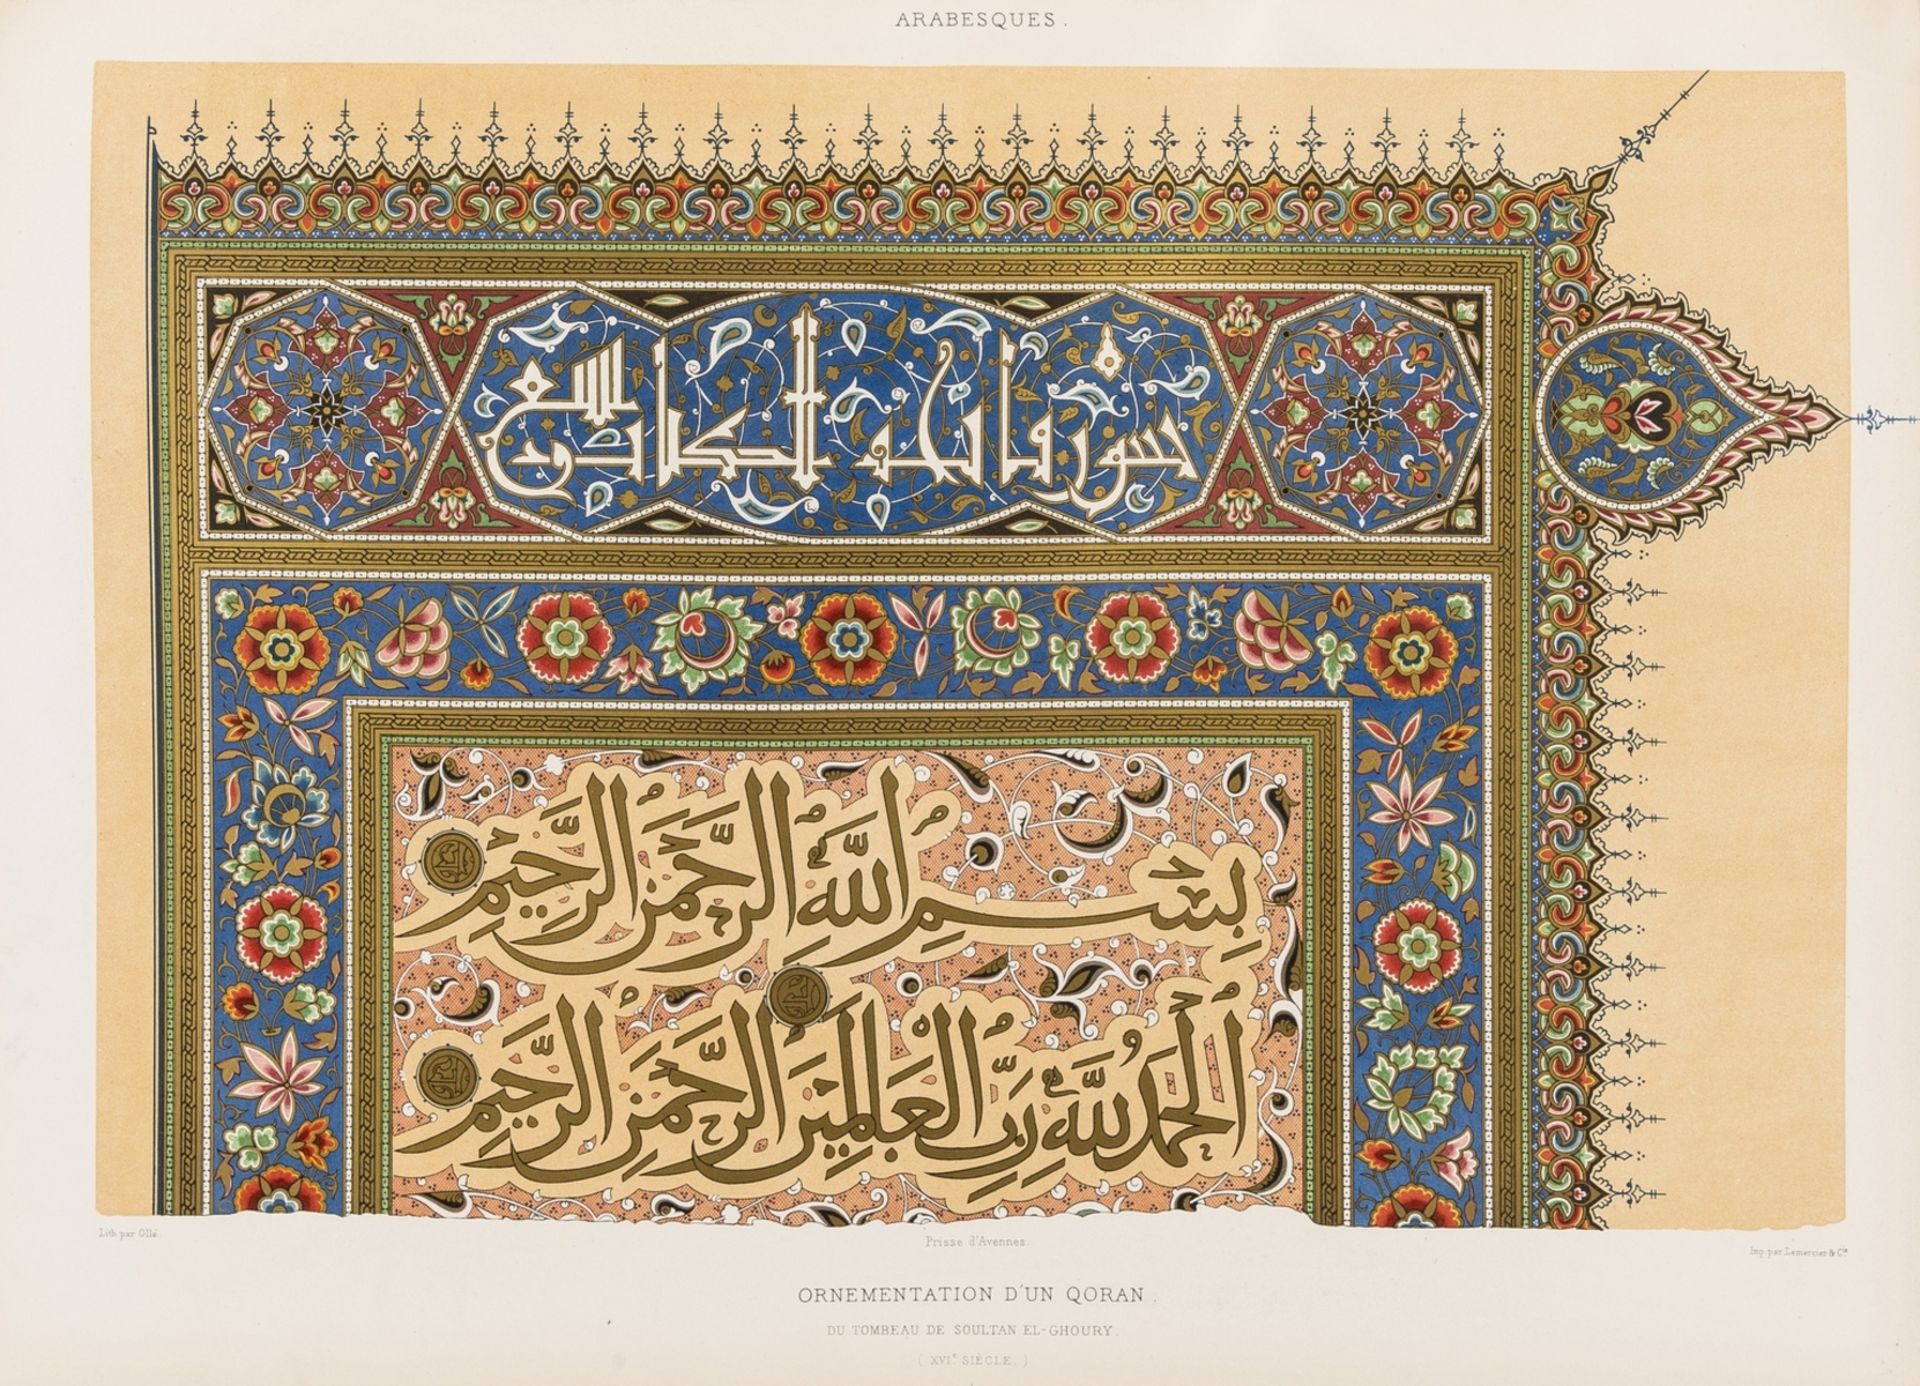 ARABESQUES.
سورة فاتحة الكتاب سبع
بِسْمِ اللَّهِ الرَّحْمَٰنِ الرَّحِيمِ
اَلْحَمْدُ لِلَّهِ رَبِّ الْعَالَمِينَ الرَّحْمَٰنِ الرَّحِيمِ
Lith. par Ollé.
Prisse d'Avennes.
Imp. par Lemercier & Cie
ORNEMENTATION D'UN QORAN.
DU TOMBEAU DE SOULTAN EL-GHOURY.
(XVIe SIÈCLE.)